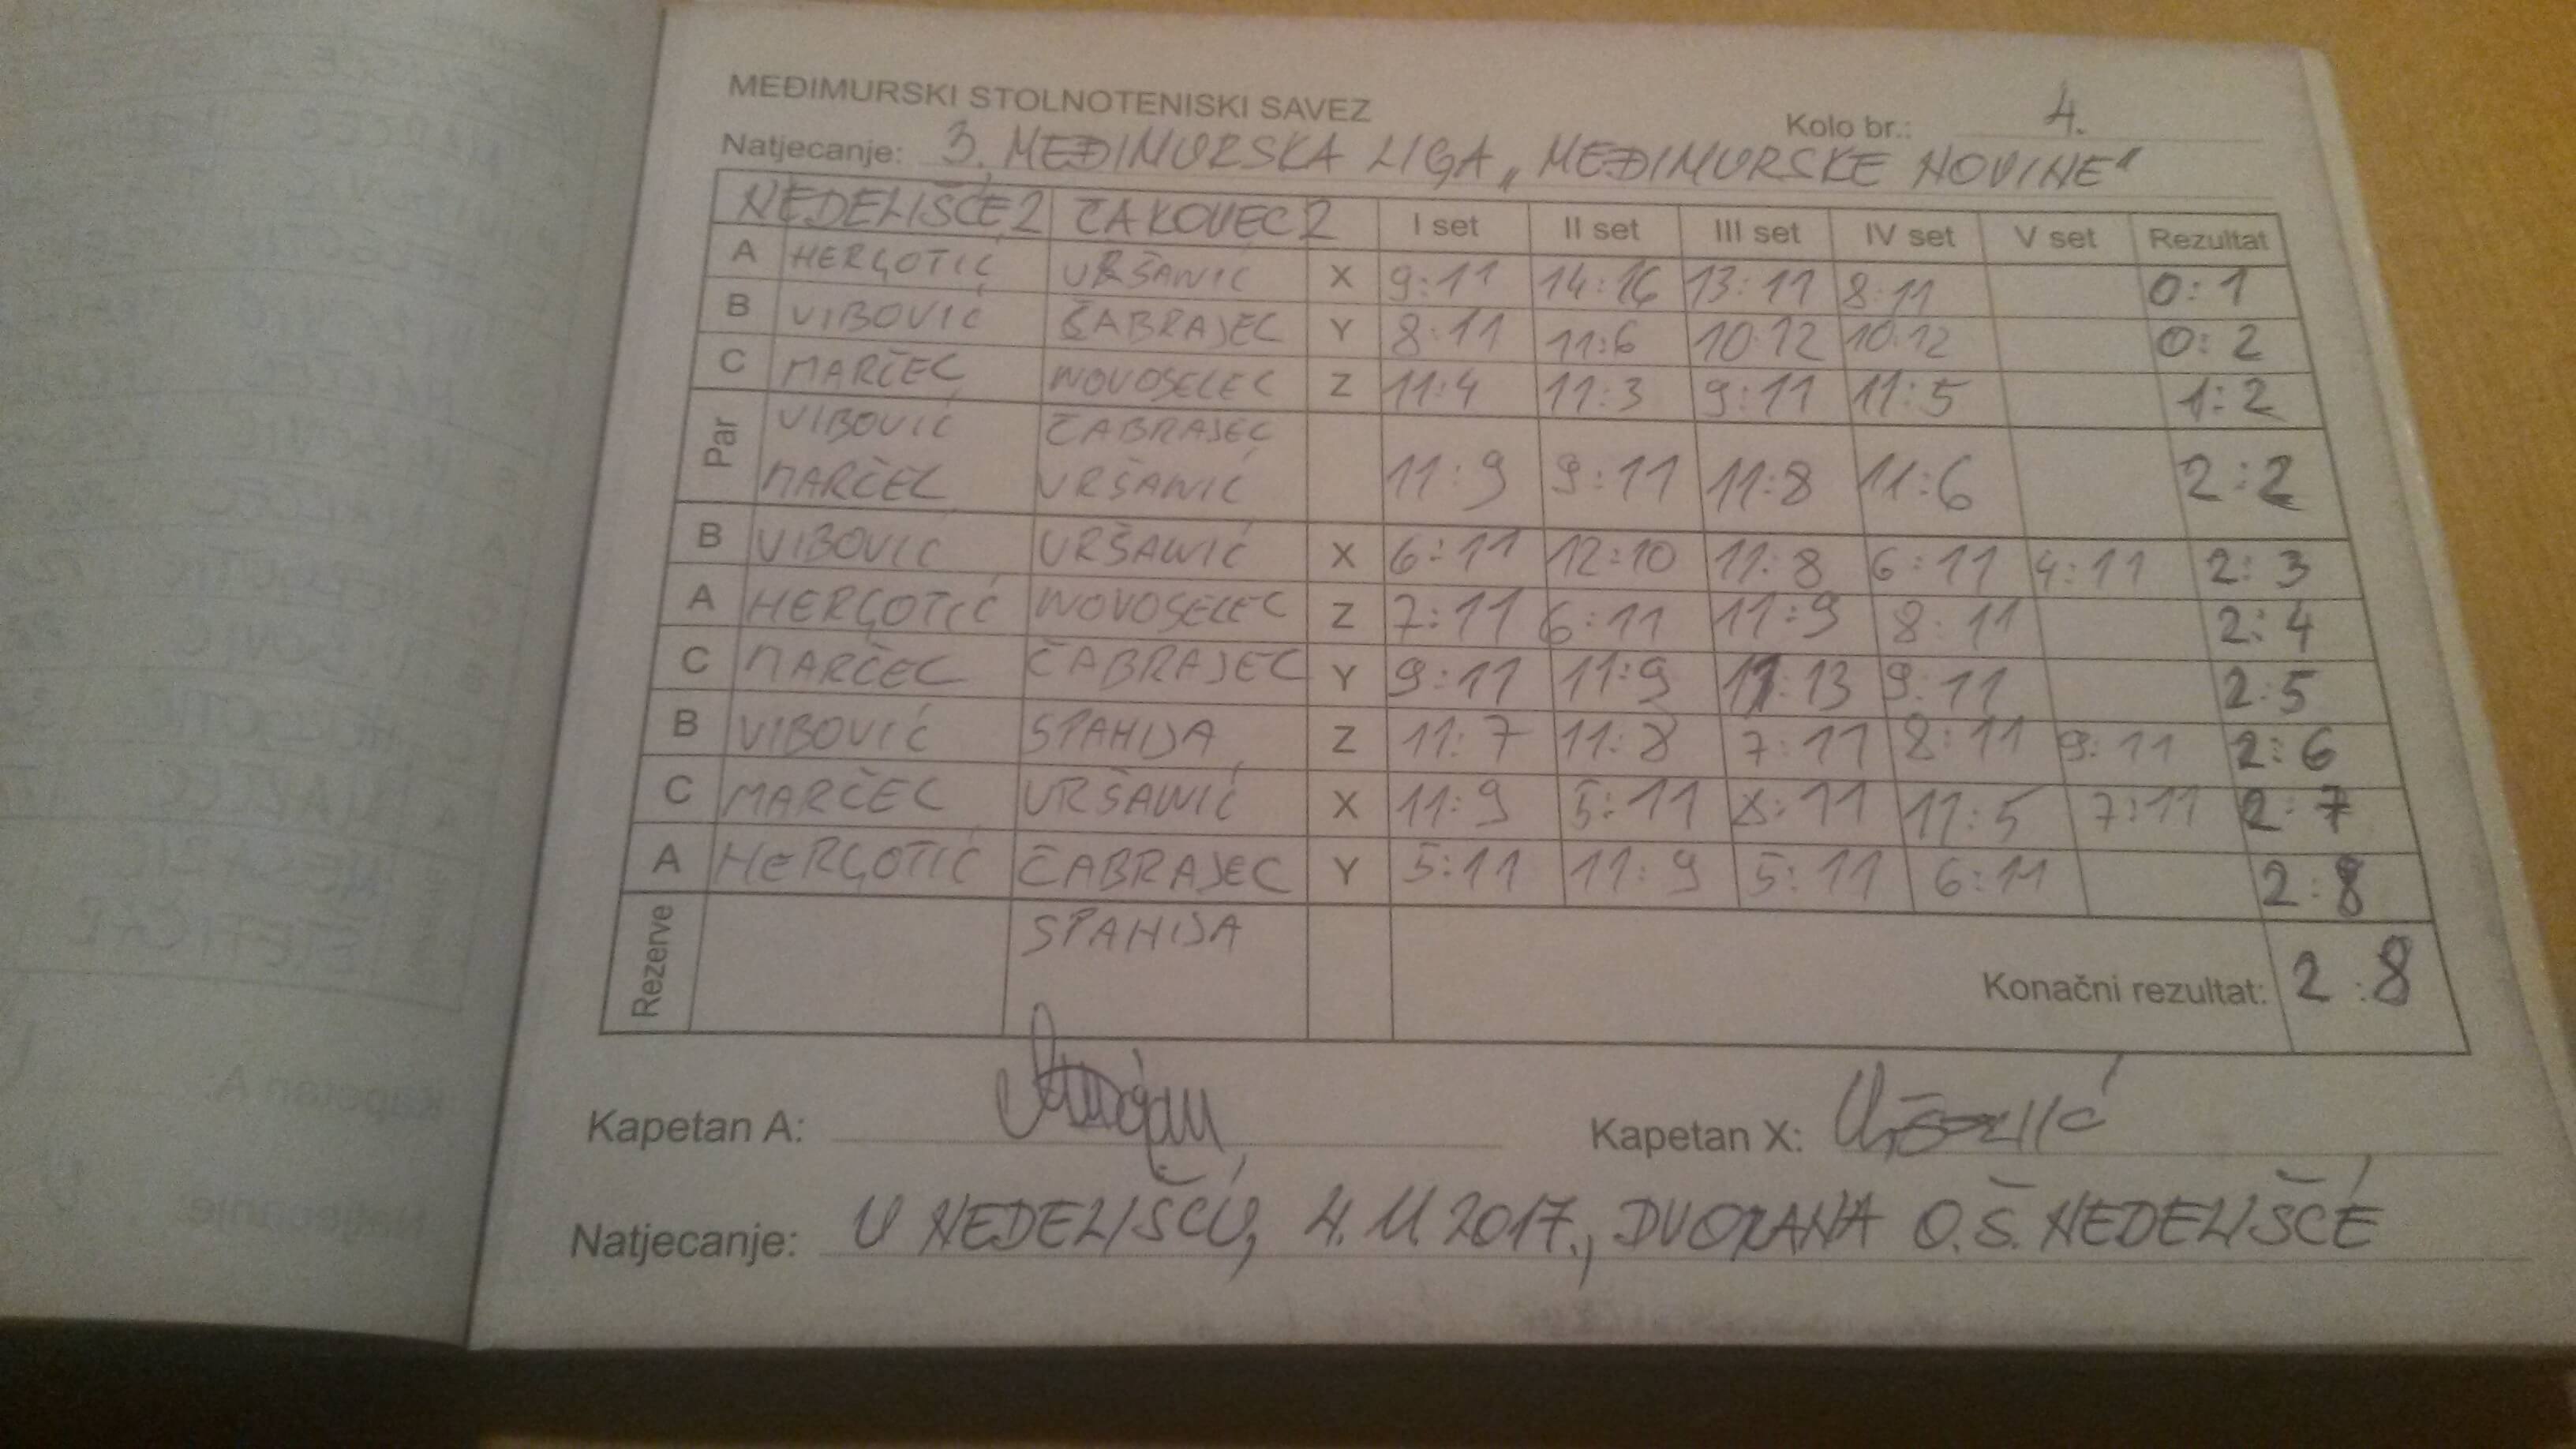 MEĐIMURSKI STOLNOTENISKI SAVEZ
Kolo br.: 4.
Natjecanje: 3. MEĐIMURSKA LIGA „MEĐIMURSKE NOVINE"
NEDELIŠĆE 2 ČAKOVEC 2 I set II set III set IV set V set Rezultat
A HERGOTIĆ VRŠANIĆ X 9:11 14:16 13:11 8:11 0:1
B VIBOVIĆ ČABRAJEC Y 8:11 11:6 10:12 10:12 0:2
C MARČEC NOVOSELEC Z 11:4 11:3 9:11 11:5 1:2
Par VIBOVIĆ ČABRAJEC
MARČEC VRŠANIĆ 11:9 9:11 11:8 11:6 2:2
B VIBOVIĆ VRŠANIĆ X 6:11 12:10 11:8 6:11 4:11 2:3
A HERGOTIĆ NOVOSELEC Z 7:11 6:11 11:9 8:11 2:4
C MARČEC ČABRAJEC Y 9:11 11:9 11:13 9:11 2:5
B VIBOVIĆ SPAHIJA Z 11:7 11:8 7:11 8:11 9:11 2:6
C MARČEC VRŠANIĆ X 11:9 5:11 8:11 11:5 7:11 2:7
A HERGOTIĆ ČABRAJEC Y 5:11 11:9 5:11 6:11 2:8
Rezerve SPAHIJA
Konačni rezultat: 2:8
Kapetan A: Kapetan X: Vršanić
Natjecanje: U NEDELIŠĆU, 4.11.2017., DVORANA O.Š. NEDELIŠĆE